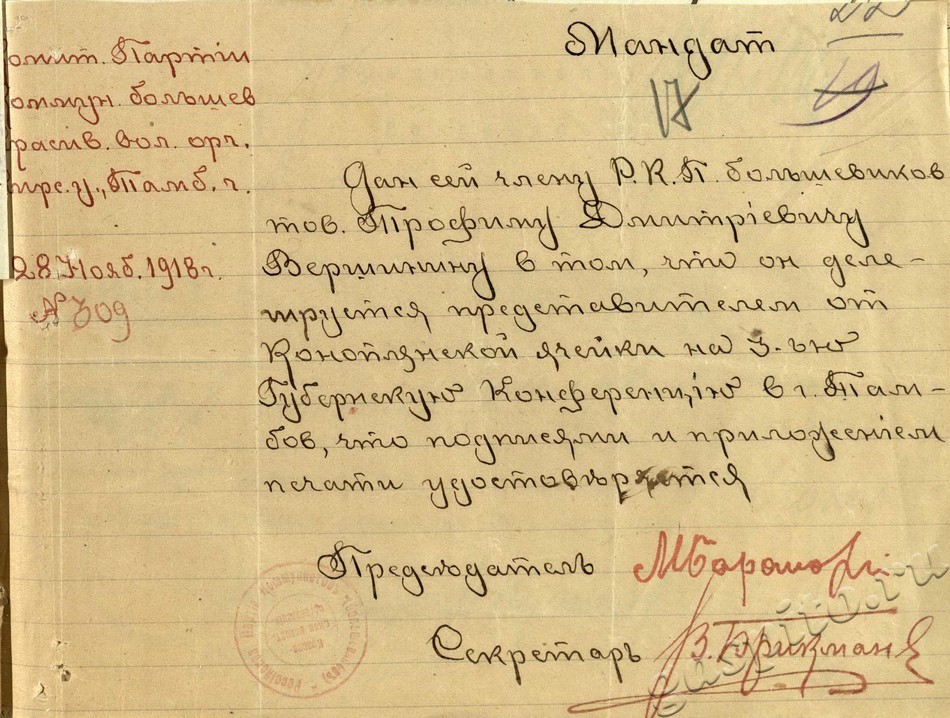 Мандат
17
19
омит. Партіи
оммун. большев
расив. вол. орг.
28 Нояб. 1918 г.
№ 309
Дан сей члену Р.К.П. большевиков
тов. Трофиму Дмитріевичу
Вершинину в том, что он деле-
гируется представителем от
Коноплянской ячейки на 3-ью
Губернскую Конференцію в г. Там-
бов, что подписями и приложеніем
печати удостовѣряется
Председатель
Секретарь